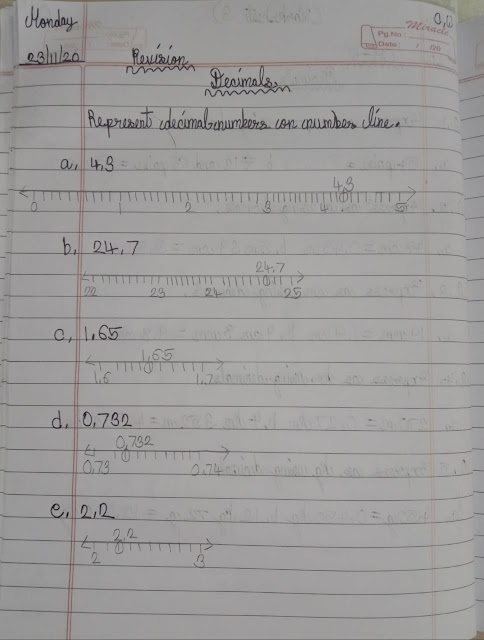 Monday
C.W
Miracle
Pg.No.
Date : / /20
23/11/20
Revision
Decimals
Represent decimal numbers on number line.
a, 4,3
4,3
0 1 2 3 4 5
b, 24,7
24,7
22 23 24 25
c, 1,65
1,65
1,6 1,7
d, 0,732
0,732
0,73 0,74
e, 2,2
2,2
2 3